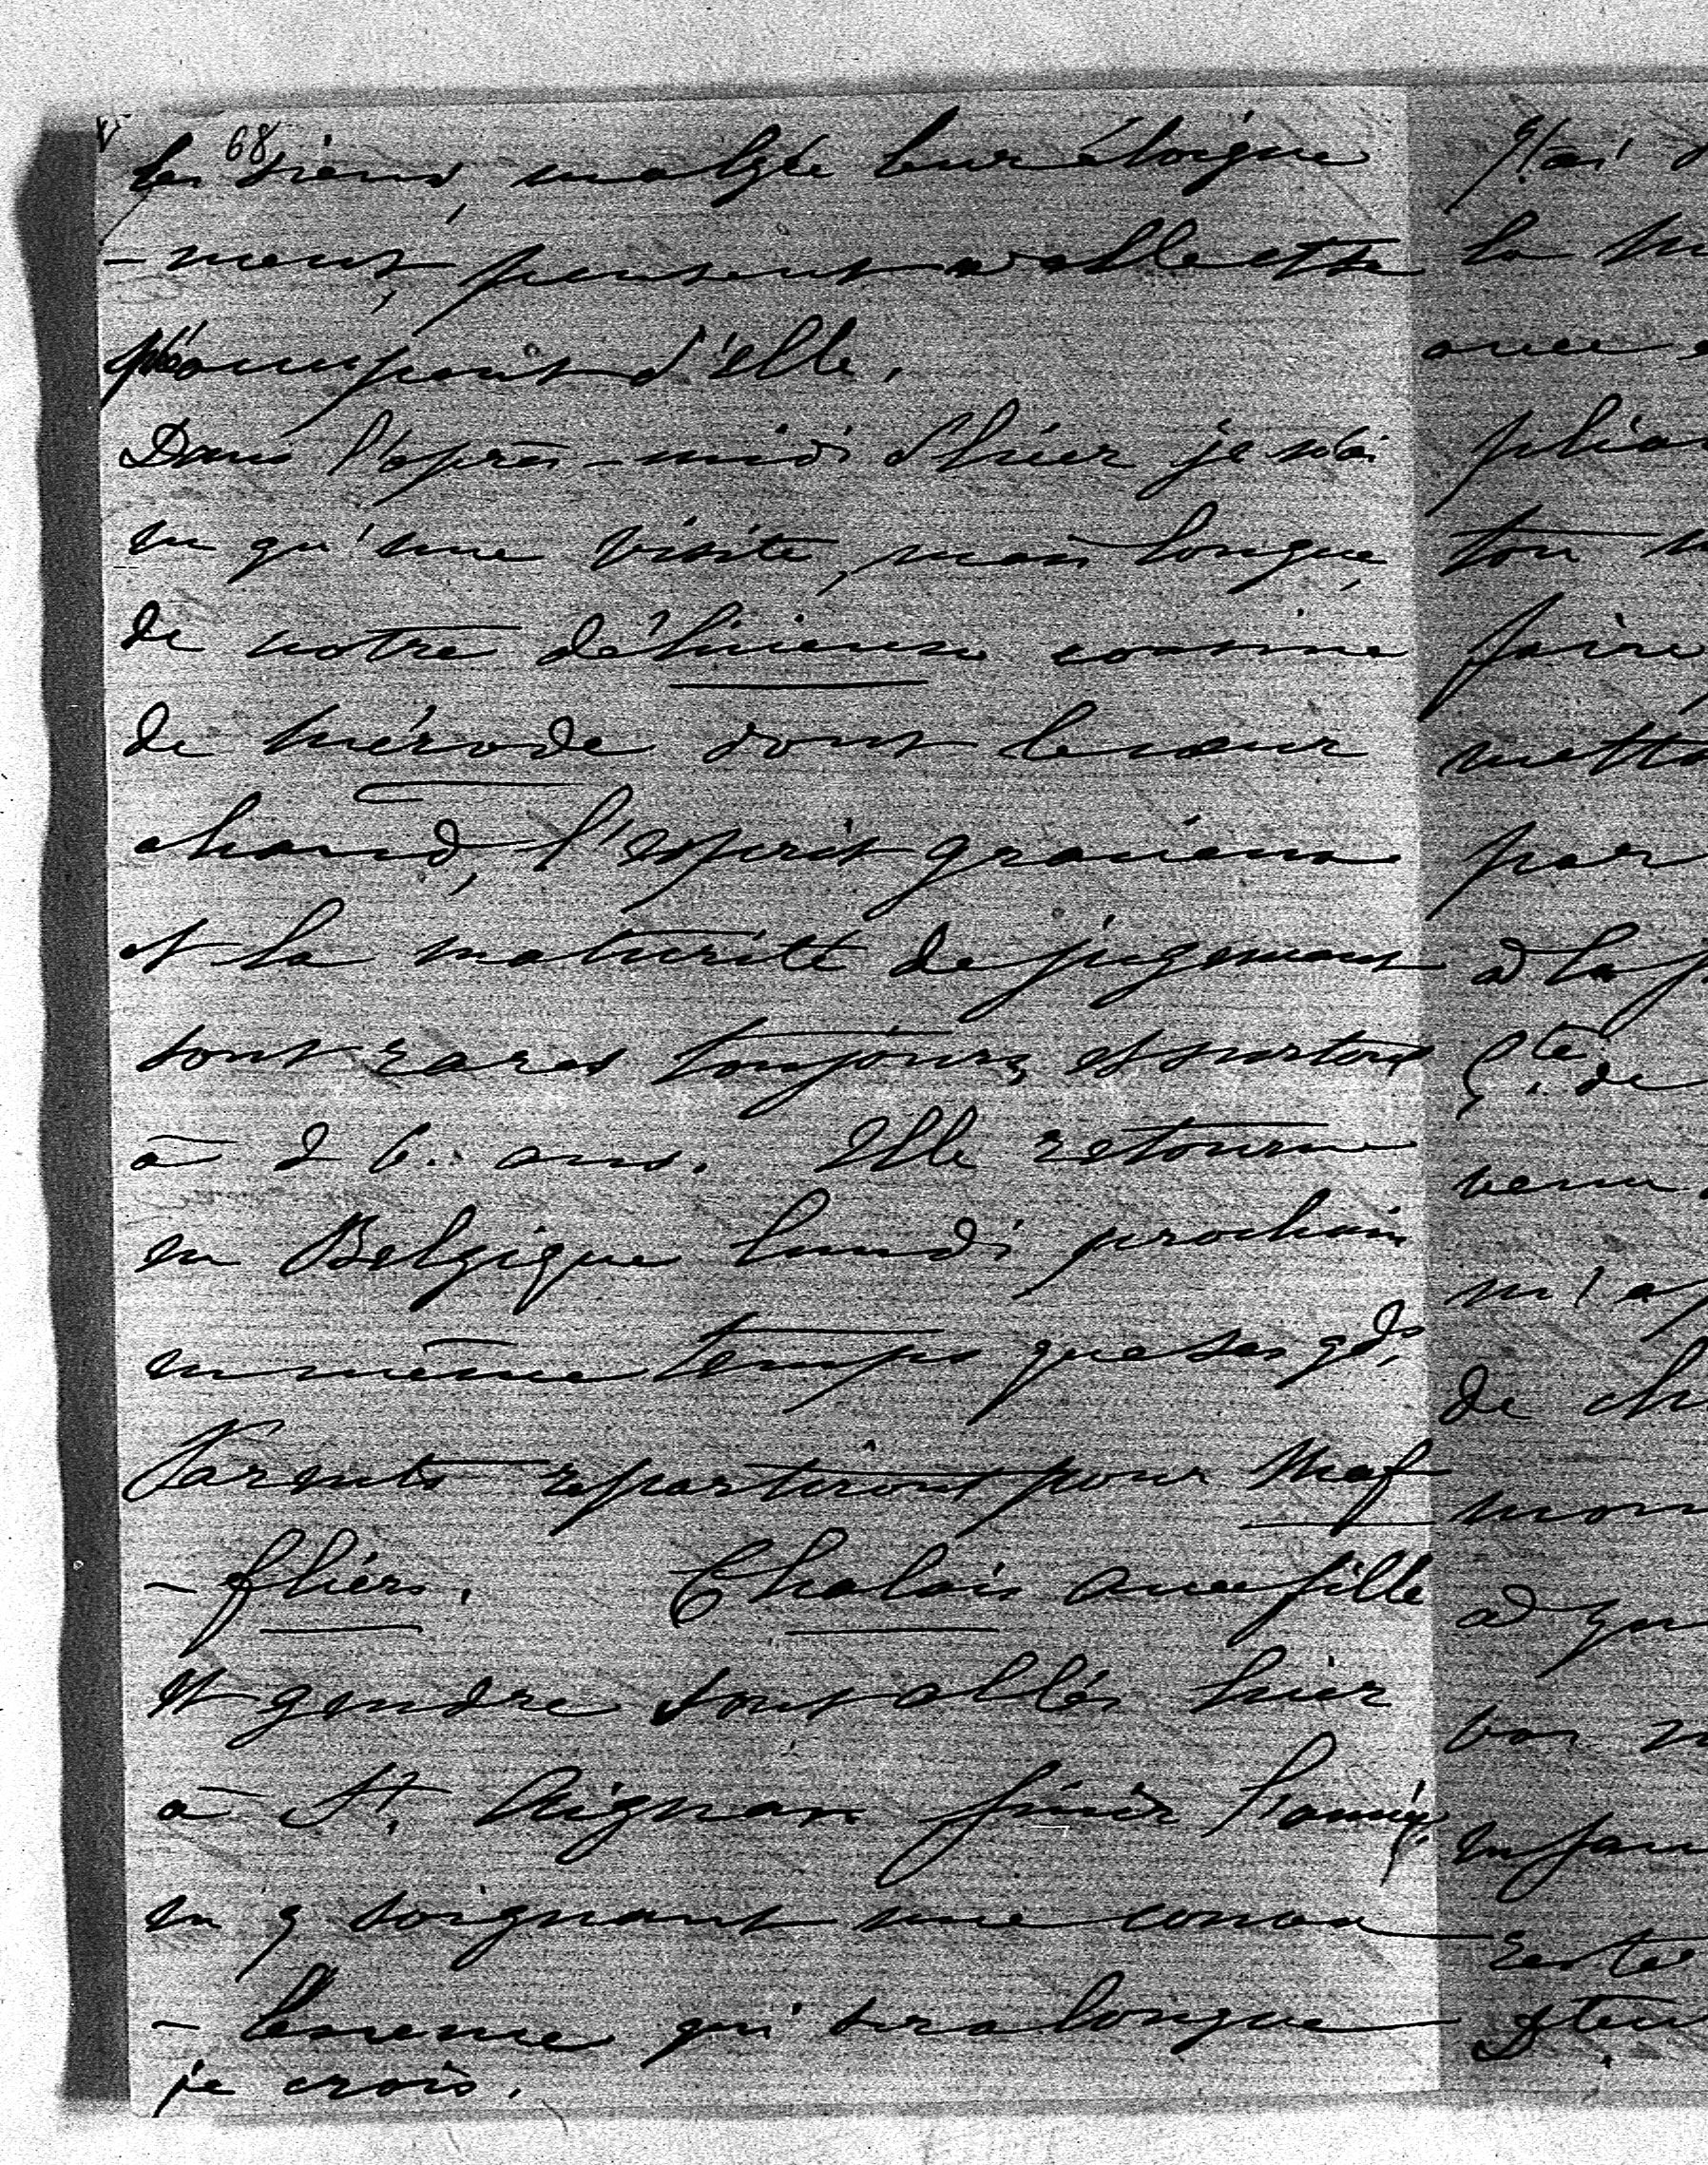 68
les siens, malgré leur éloigne
-ment, pensent à elle et se
préoccupent d'elle.
Dans l'après-midi d'hier je n'ai
eu qu'une visite, mais longue,
de notre délicieuse cousine
de Mérode dont le cœur
chaud, l'esprit gracieux
et la maturité de jugement
sont rares toujours, et surtout
à 26. ans. Elle retourne
en Belgique lundi prochain
en même temps que ses gds
Parents repartiront pour Maf
-fliers. Chalais avec fille
et gendre sont allés hier
à St. Aignan finir l'année,
en y soignant une conva
-lescence qui sera longue
je crois.
J'ai
la
avec
ton
faire
par
à la
Cte. de
de
à